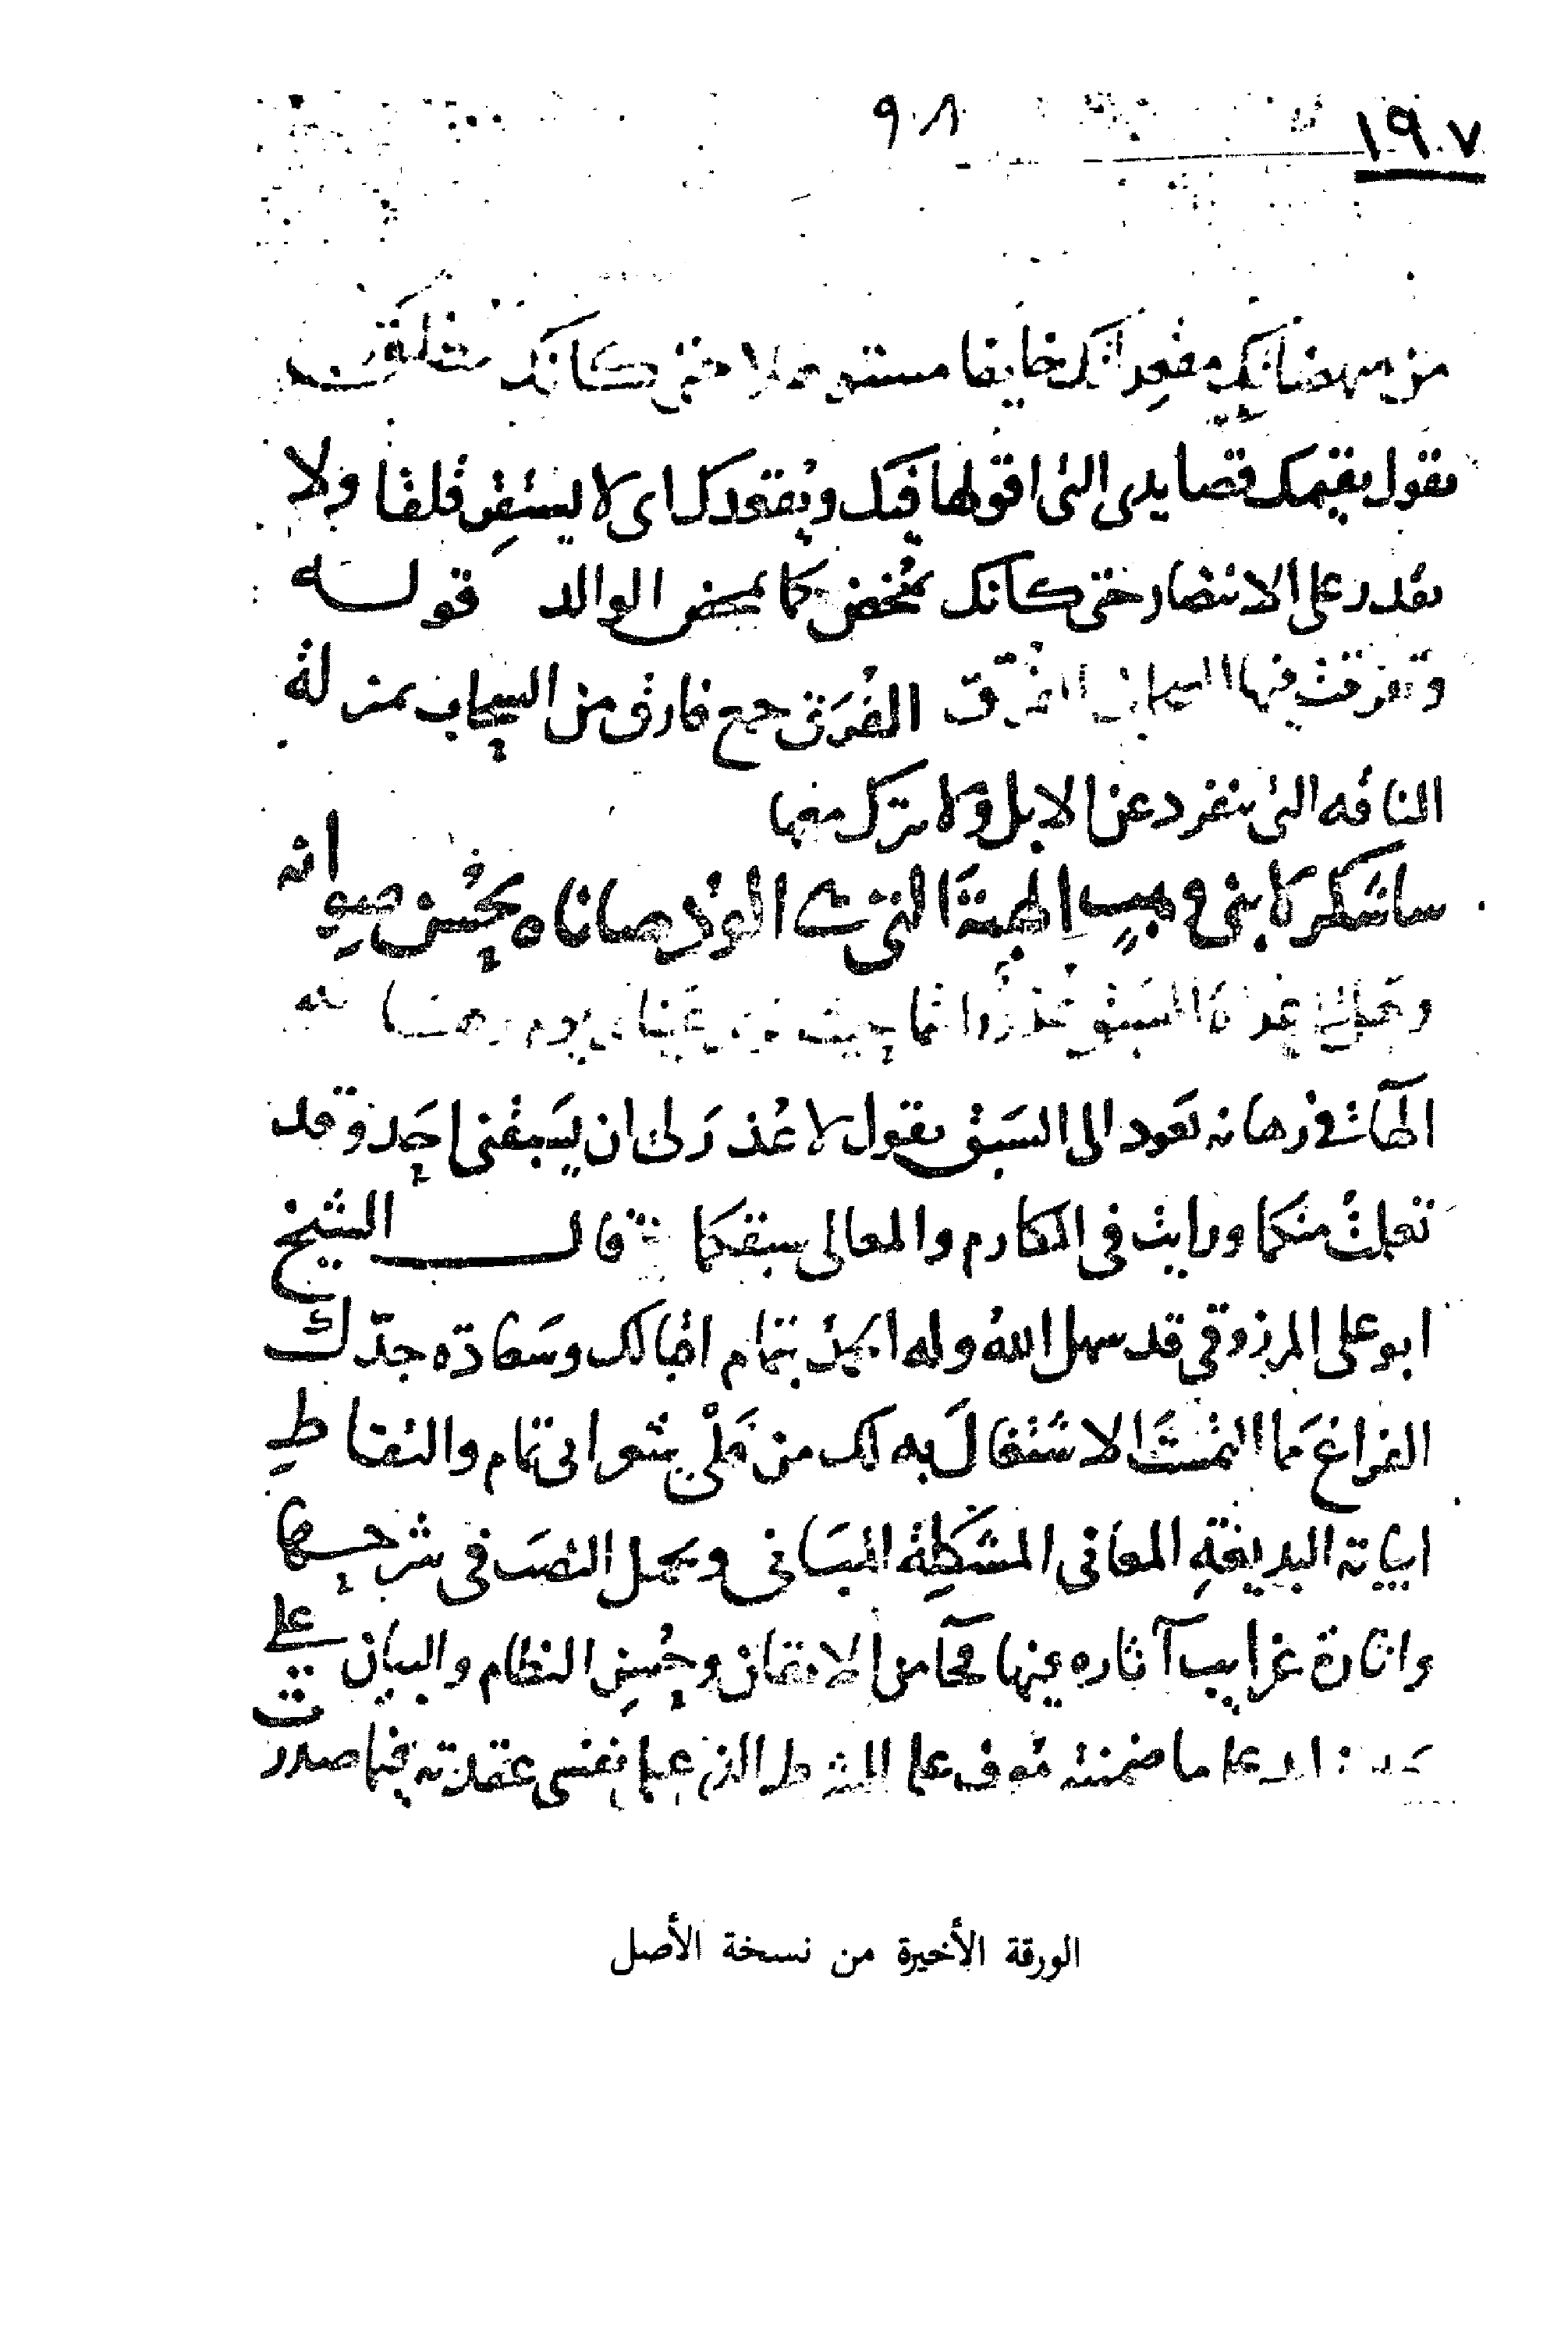 ١٩٧
٩٠٨
من منهضاتك مقعداتك خايفا مستوهلا حتى كانك
يقول يقيمك قصايدى التى اقولها فيك ويقعدك اى لا يستقر قلقا ولا
يقدر على الانتصار حتى كانك تمخض كما يمخض الوالد قوله
وتفرقت فيها السحاب الفرق الفرق جمع فارق من السحاب بمنزلة
الناقه التى تنفرد عن الابل ولا تترك معها
ساشكر لابنى وهب الهبة التى هى الود صاناه بحسن صيوانه
الهآء فى رهانه تعود الى السبق يقول لا عذر لى ان يسبقنى احد وقد
تعلمت منكما ورايت فى المكارم والمعالى سبقكما قال الشيخ
ابو على المرزوقى قد سهل الله وله الحمد بتمام اقبالك وسعادة جدك
الفراغ مما التمست الاشتغال به لك من شعر ابى تمام والتقاط
ابياته البديعة المعانى المشكلة المبانى وتحمل النصب فى شرحها
واثارة غرايب آثاره عنها من الاتقان وحسن النظام والبيان على
ما ضمنته موف على الشرط الذى على نفسى عقدته فيما صدرت
الورقة الأخيرة من نسخة الأصل